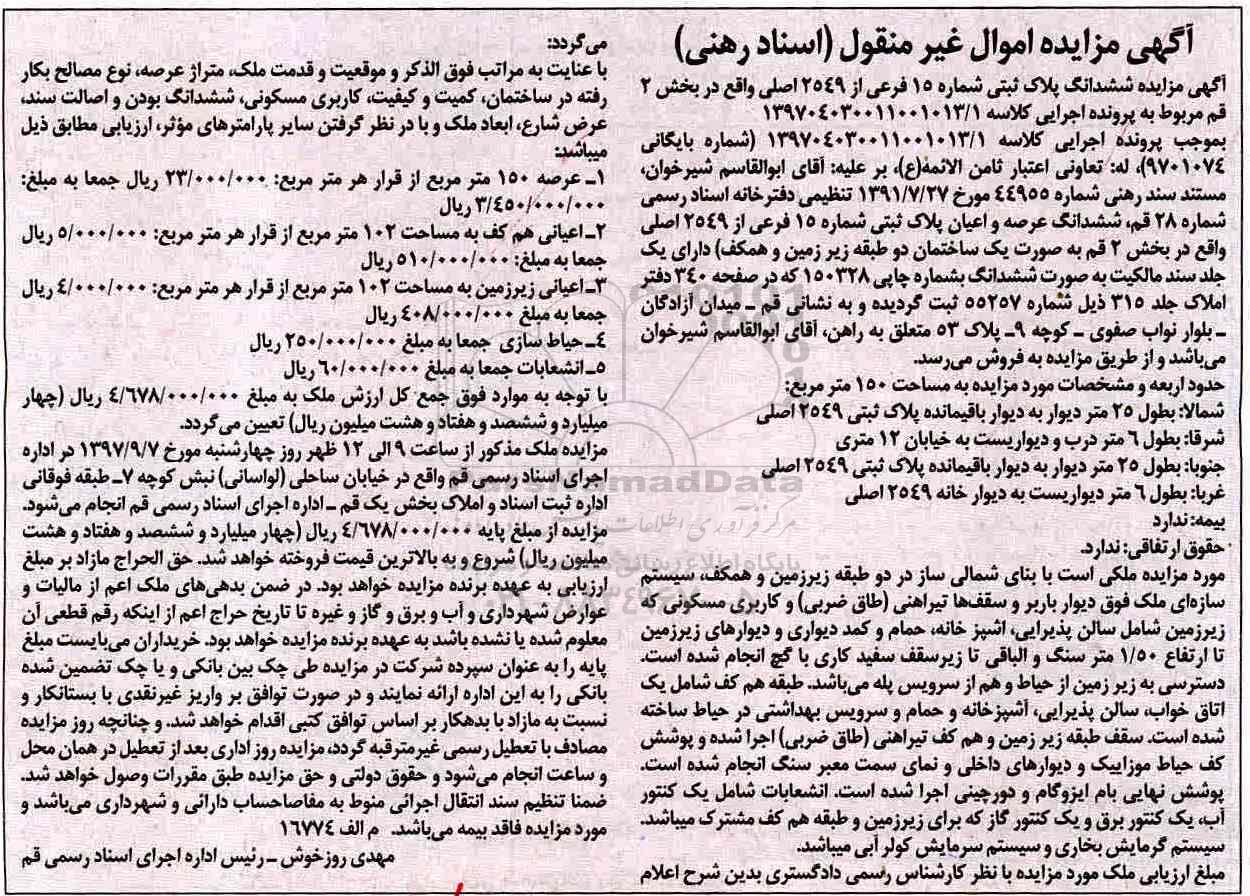 آگهی مزایده اموال غیر منقول (اسناد رهنی)
آگهی مزایده ششدانگ پلاک ثبتی شماره ۱۵ فرعی از ۲۵۴۹ اصلی واقع در بخش ۲
قم مربوط به پرونده اجرایی کلاسه ۱۳۹۷۰۴۰۳۰۰۱۱۰۰۱۰۱۳/۱
بموجب پرونده اجرایی کلاسه ۱۳۹۷۰۴۰۳۰۰۱۱۰۰۱۰۱۳/۱ (شماره بایگانی
۹۷۰۱۰۷۴)، له: تعاونی اعتبار ثامن الائمه(ع)، بر علیه: آقای ابوالقاسم شیرخوان،
مستند سند رهنی شماره ۴۴۹۵۵ مورخ ۱۳۹۱/۷/۲۷ تنظیمی دفترخانه اسناد رسمی
شماره ۲۸ قم، ششدانگ عرصه و اعیان پلاک ثبتی شماره ۱۵ فرعی از ۲۵۴۹ اصلی
واقع در بخش ۲ قم به صورت یک ساختمان دو طبقه زیر زمین و همکف) دارای یک
جلد سند مالکیت به صورت ششدانگ بشماره چاپی ۱۵۰۳۲۸ که در صفحه ۳۴۰ دفتر
املاک جلد ۳۱۵ ذیل شماره ۵۵۲۵۷ ثبت گردیده و به نشانی قم ـ میدان آزادگان
ـ بلوار نواب صفوی ـ کوچه ۹ـ پلاک ۵۳ متعلق به راهن، آقای ابوالقاسم شیرخوان
می‌باشد و از طریق مزایده به فروش می‌رسد.
حدود اربعه و مشخصات مورد مزایده به مساحت ۱۵۰ متر مربع:
شمالا: بطول ۲۵ متر دیوار به دیوار باقیمانده پلاک ثبتی ۲۵۴۹ اصلی
شرقا: بطول ۶ متر درب و دیواریست به خیابان ۱۲ متری
جنوبا: بطول ۲۵ متر دیوار به دیوار باقیمانده پلاک ثبتی ۲۵۴۹ اصلی
غربا: بطول ۶ متر دیواریست به دیوار خانه ۲۵۴۹ اصلی
بیمه: ندارد
حقوق ارتفاقی: ندارد.
مورد مزایده ملکی است با بنای شمالی ساز در دو طبقه زیرزمین و همکف، سیستم
سازه‌ای ملک فوق دیوار باربر و سقف‌ها تیرآهنی (طاق ضربی) و کاربری مسکونی که
زیرزمین شامل سالن پذیرایی، اشپز خانه، حمام و کمد دیواری و دیوارهای زیرزمین
تا ارتفاع ۱/۵۰ متر سنگ و الباقی تا زیرسقف سفید کاری با گچ انجام شده است.
دسترسی به زیر زمین از حیاط و هم از سرویس پله می‌باشد. طبقه هم کف شامل یک
اتاق خواب، سالن پذیرایی، آشپزخانه و حمام و سرویس بهداشتی در حیاط ساخته
شده است. سقف طبقه زیر زمین و هم کف تیراهنی (طاق ضربی) اجرا شده و پوشش
کف حیاط موزاییک و دیوارهای داخلی و نمای سمت معبر سنگ انجام شده است.
پوشش نهایی بام ایزوگام و دورچینی اجرا شده است. انشعابات شامل یک کنتور
آب، یک کنتور برق و یک کنتور گاز که برای زیرزمین و طبقه هم کف مشترک میباشد.
سیستم گرمایش بخاری و سیستم سرمایش کولر آبی میباشد.
مبلغ ارزیابی ملک مورد مزایده با نظر کارشناس رسمی دادگستری بدین شرح اعلام
می‌گردد:
با عنایت به مراتب فوق الذکر و موقعیت و قدمت ملک، متراژ عرصه، نوع مصالح بکار
رفته در ساختمان، کمیت و کیفیت، کاربری مسکونی، ششدانگ بودن و اصالت سند،
عرض شارع، ابعاد ملک و با در نظر گرفتن سایر پارامترهای مؤثر، ارزیابی مطابق ذیل
میباشد:
۱ـ عرصه ۱۵۰ متر مربع از قرار هر متر مربع: ۲۳/۰۰۰/۰۰۰ ریال جمعا به مبلغ:
۳/۴۵۰/۰۰۰/۰۰۰ ریال
۲ـ اعیانی هم کف به مساحت ۱۰۲ متر مربع از قرار هر متر مربع: ۵/۰۰۰/۰۰۰ ریال
جمعا به مبلغ: ۵۱۰/۰۰۰/۰۰۰ ریال
۳ـ اعیانی زیرزمین به مساحت ۱۰۲ متر مربع از قرار هر متر مربع: ۴/۰۰۰/۰۰۰ ریال
جمعا به مبلغ ۴۰۸/۰۰۰/۰۰۰ ریال
۴ـ حیاط سازی جمعا به مبلغ ۲۵۰/۰۰۰/۰۰۰ ریال
۵ـ انشعابات جمعا به مبلغ ۶۰/۰۰۰/۰۰۰ ریال
با توجه به موارد فوق جمع کل ارزش ملک به مبلغ ۴/۶۷۸/۰۰۰/۰۰۰ ریال (چهار
میلیارد و ششصد و هفتاد و هشت میلیون ریال) تعیین می گردد.
مزایده ملک مذکور از ساعت ۹ الی ۱۲ ظهر روز چهارشنبه مورخ ۱۳۹۷/۹/۷ در اداره
اجرای اسناد رسمی قم واقع در خیابان ساحلی (لواسانی) نبش کوچه ۷ـ طبقه فوقانی
اداره ثبت اسناد و املاک بخش یک قم ـ اداره اجرای اسناد رسمی قم انجام می‌شود.
مزایده از مبلغ پایه ۴/۶۷۸/۰۰۰/۰۰۰ ریال (چهار میلیارد و ششصد و هفتاد و هشت
میلیون ریال) شروع و به بالاترین قیمت فروخته خواهد شد. حق الحراج مازاد بر مبلغ
ارزیابی به عهده برنده مزایده خواهد بود. در ضمن بدهی‌های ملک اعم از مالیات و
عوارض شهرداری و آب و برق و گاز و غیره تا تاریخ حراج اعم از اینکه رقم قطعی آن
معلوم شده یا نشده باشد به عهده برنده مزایده خواهد بود. خریداران می‌بایست مبلغ
پایه را به عنوان سپرده شرکت در مزایده طی چک بین بانکی و یا چک تضمین شده
بانکی را به این اداره ارائه نمایند و در صورت توافق بر واریز غیرنقدی با بستانکار و
نسبت به مازاد با بدهکار بر اساس توافق کتبی اقدام خواهد شد. و چنانچه روز مزایده
مصادف با تعطیل رسمی غیرمترقبه گردد، مزایده روز اداری بعد از تعطیل در همان محل
و ساعت انجام می‌شود و حقوق دولتی و حق مزایده طبق مقررات وصول خواهد شد.
ضمنا تنظیم سند انتقال اجرائی منوط به مفاصاحساب دارائی و شهرداری می‌باشد و
مورد مزایده فاقد بیمه می‌باشد. م الف ۱۶۷۷۴
مهدی روزخوش ـ رئیس اداره اجرای اسناد رسمی قم